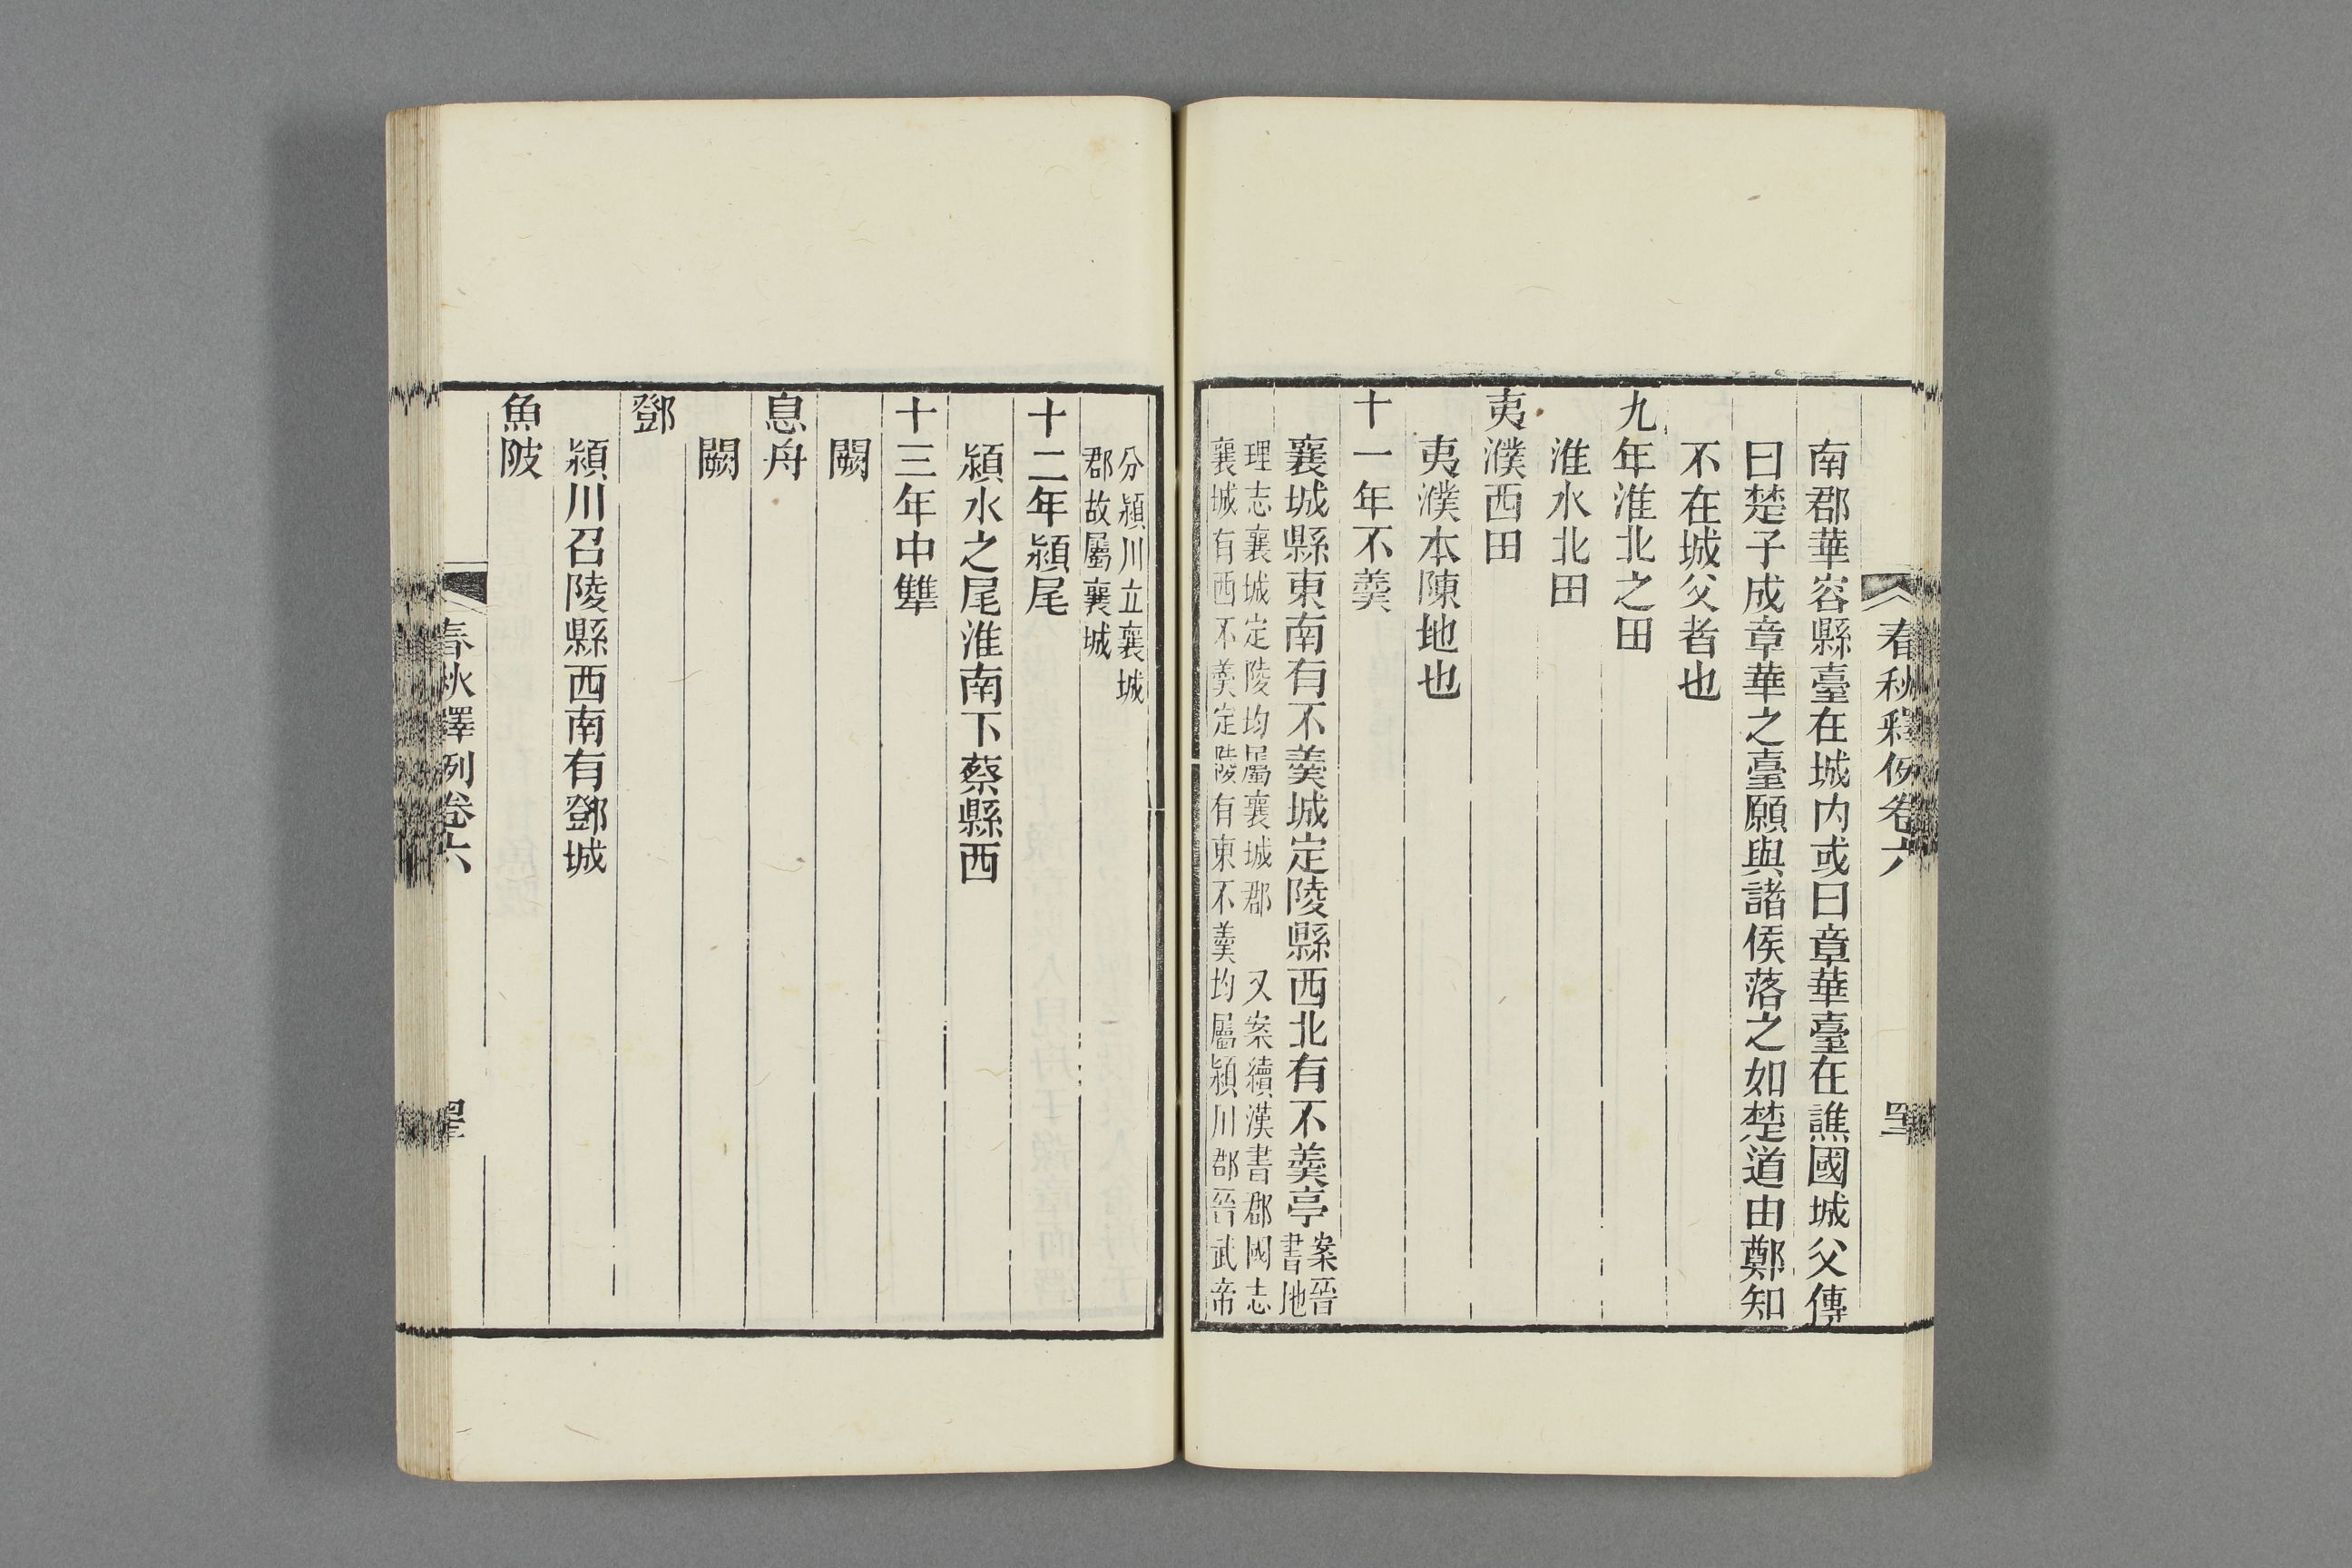 春秋釋例卷六
南郡華容縣臺在城内或曰章華臺在譙國城父傳
曰楚子成章華之臺願與諸侯落之如楚道由鄭知
不在城父者也
九年淮北之田
淮水北田
夷濮西田
夷濮本陳地也
十一年不羹
襄城縣東南有不羹城定陵縣西北有不羹亭案晉
書地
理志襄城定陵均屬襄城郡 又案續漢書郡國志
襄城有西不羹定陵有東不羹均屬潁川郡晉武帝
分潁川立襄城
郡故屬襄城
十二年潁尾
潁水之尾淮南下蔡縣西
十三年中犫
闕
息舟
闕
鄧
潁川召陵縣西南有鄧城
魚陂
春秋釋例卷六